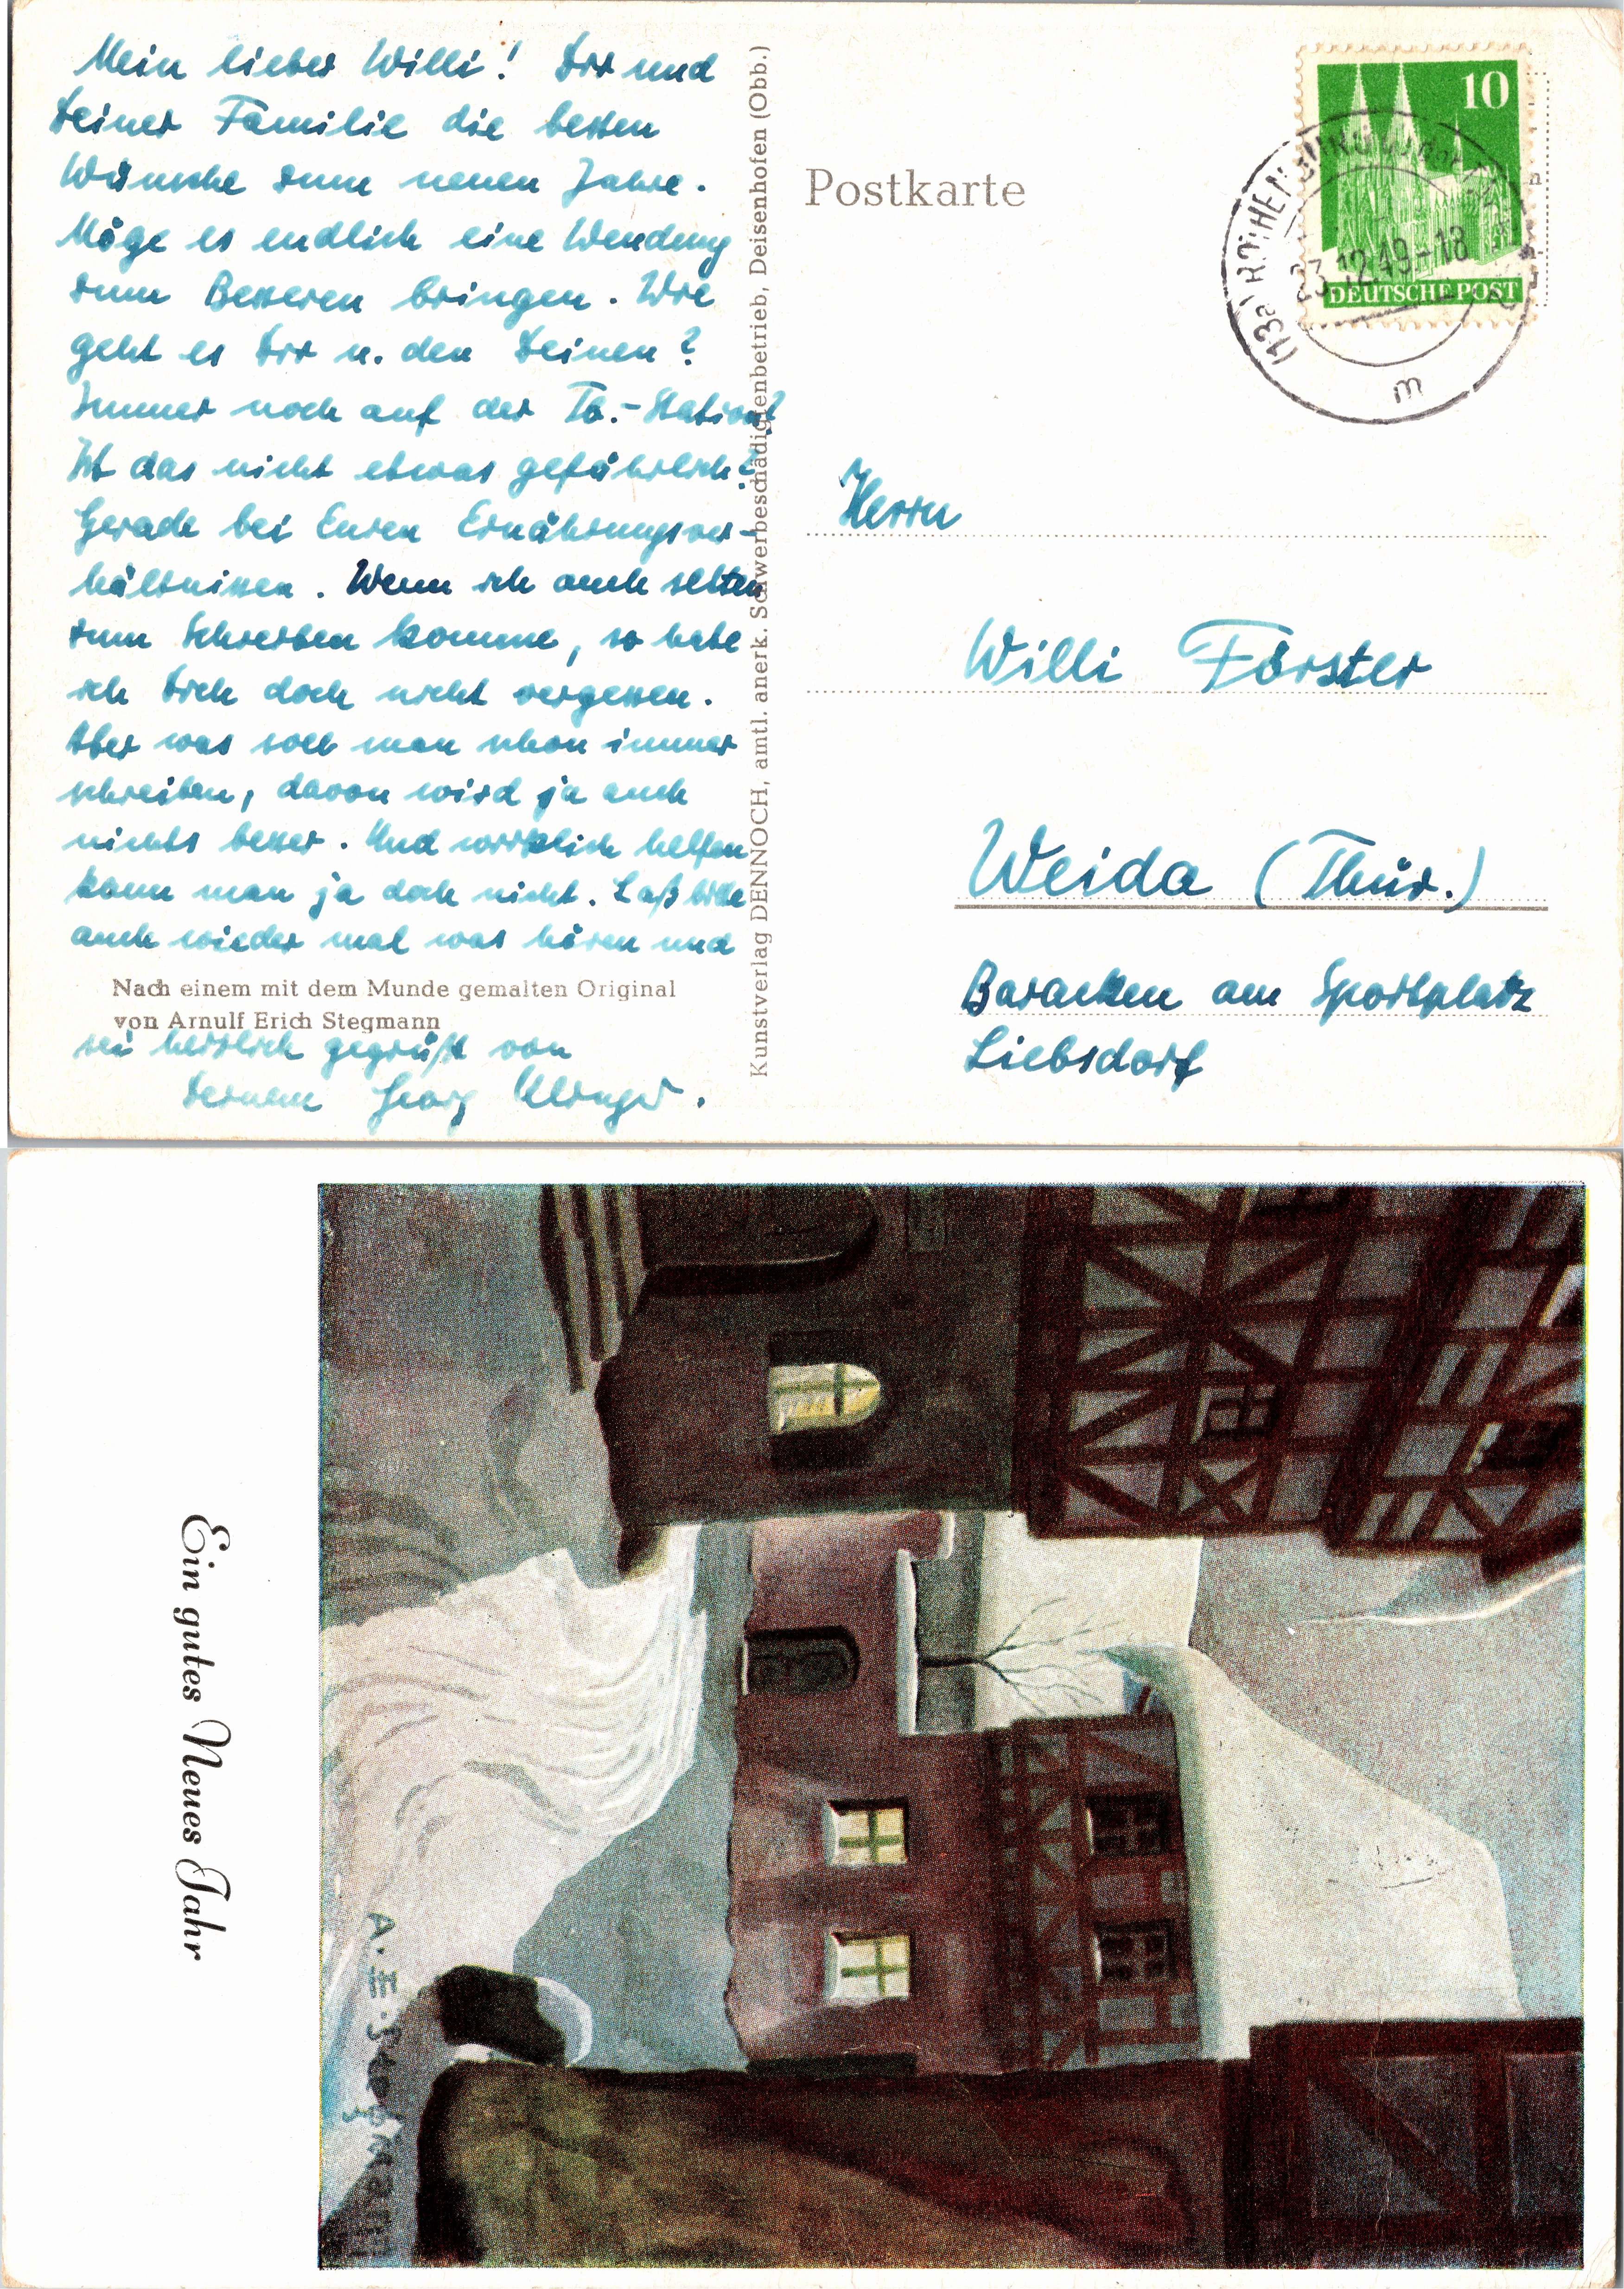 Mein lieber Willi! Dir und
Deiner Familie die besten
Wünsche zum neuen Jahre.
Möge es endlich eine Wendung
zum Besseren bringen. Wie
geht es Dir u. den Deinen?
Immer noch auf der Tb.-Station?
Ist das nicht etwas gefährlich?
Gerade bei Euren Ernährungsver-
hältnissen. Wenn ich auch selten
zum Schreiben komme, so habe
ich Dich doch nicht vergessen.
Aber was soll man schon immer
schreiben, davon wird ja auch
nichts besser. Und wirklich helfen
kann man ja doch nicht. Laß bitte
auch wieder mal was hören und
Nach einem mit dem Munde gemalten Original
von Arnulf Erich Stegmann
sei herzlich gegrüßt von
Deinem Georg
Kunstverlag DENNOCH, amtl. anerk. Schwerbeschädigtenbetrieb, Deisenhofen (Obb.)
Postkarte
10
DEUTSCHE POST
23.12.49-18
m
Herrn
Willi Förster
Weida (Thür.)
Baracken am Sportplatz
Liebsdorf
Ein gutes Neues Jahr
A.E.Stegmann